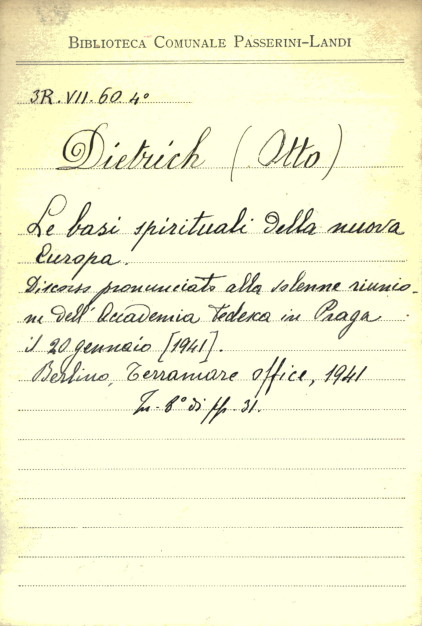 BIBLIOTECA COMUNALE PASSERINI-LANDI
3R.VII.60.4°
Dietrich (Otto)
Le basi spirituali della nuova
Europa.
Discorso pronunciato alla solenne riunio-
ne dell'Accademia tedesca in Praga
il 20 gennaio [1941].
Berlino, Terramare office, 1941
In-8° di pp. 31.